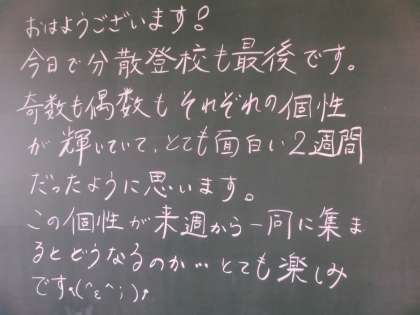 おはようございます!
今日で分散登校も最後です。
奇数も偶数もそれぞれの個性
が輝いていて、とても面白い2週間
だったように思います。
この個性が来週から一同に集ま
るとどうなるのか…とても楽しみ
です♪(^ε^;)♪